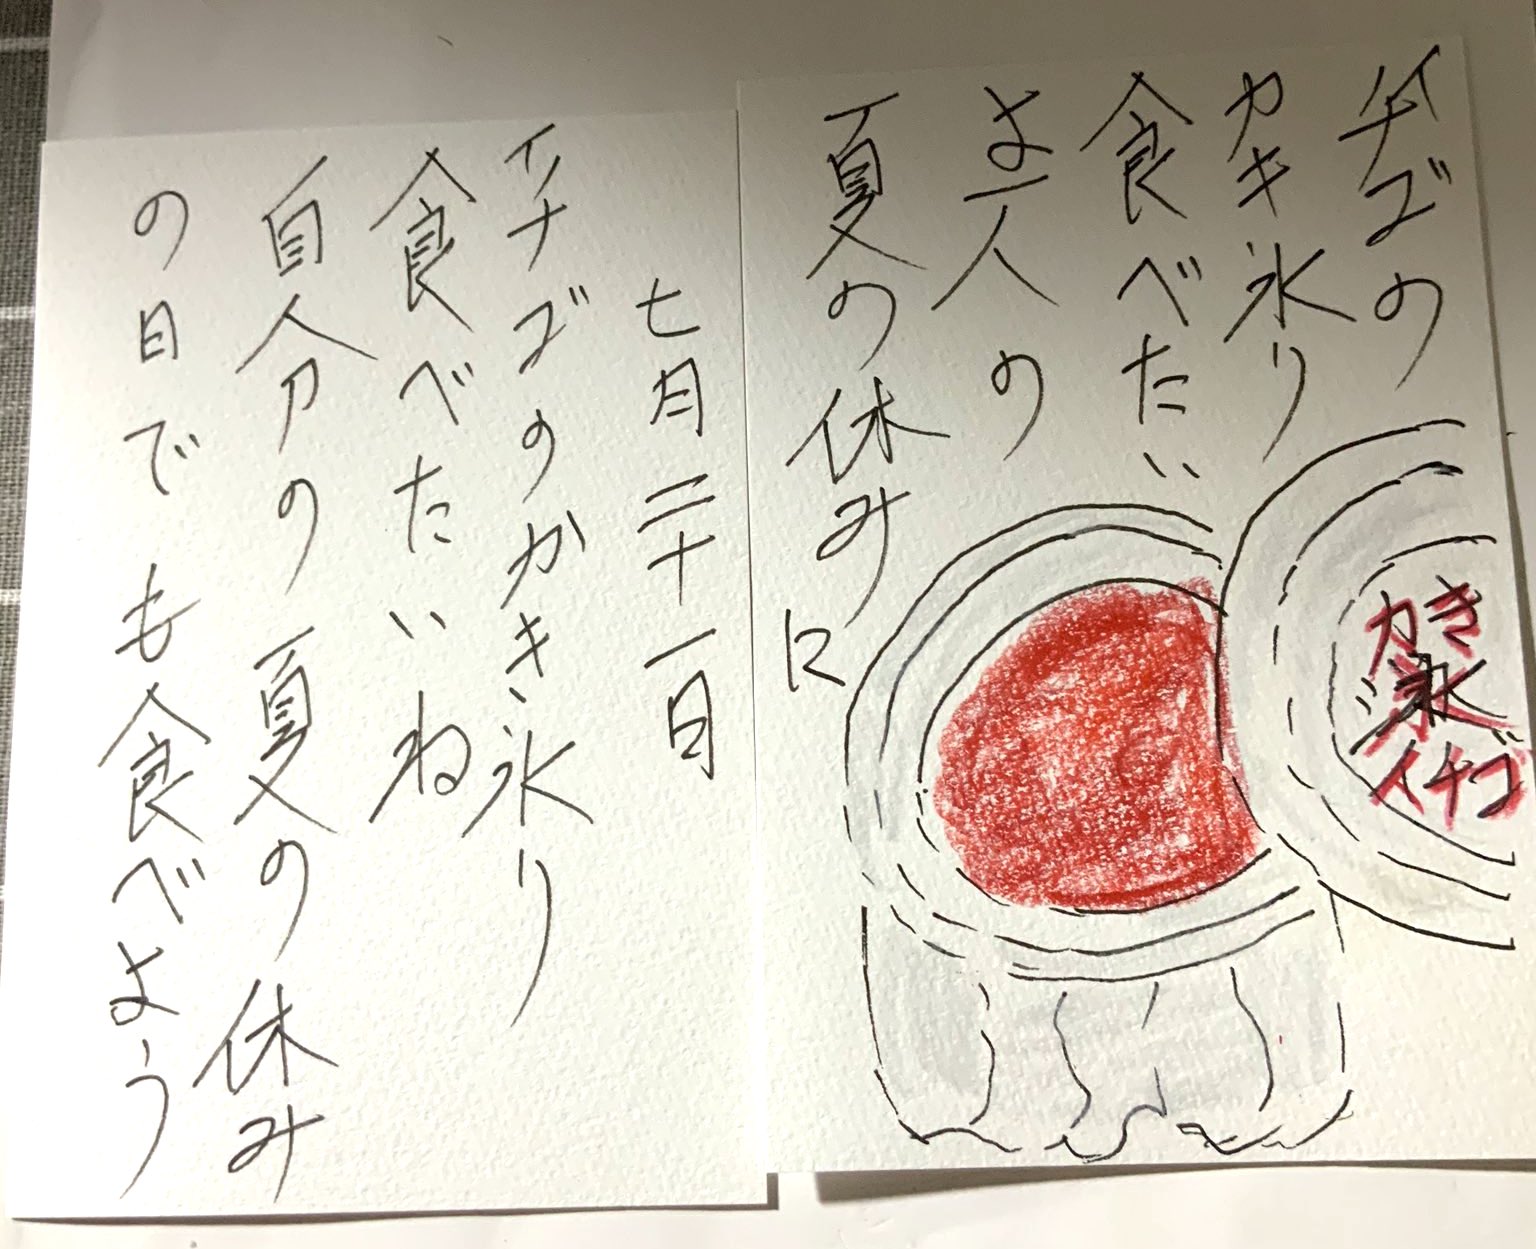 イチゴの
カキ氷り
食べたい
よ一人の
夏の休み
に
かき
氷
イチゴ
七月二十一日
イチゴのかき氷り
食べたいね
自分の夏の休み
の日でも食べよう